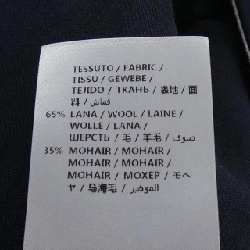 TESSUTO / FABRIC /
TISSU / GEWEBE /
TEJIDO / ТКАНЬ / 表地 / 面
料 / قماش /
65% LANA / WOOL / LAINE /
WOLLE / LANA /
ШЕРСТЬ / 毛 / 羊毛 / صوف
35% MOHAIR / MOHAIR /
MOHAIR / MOHAIR /
MOHAIR / МОХЕР / モヘ
ヤ / 马海毛 / الموهير